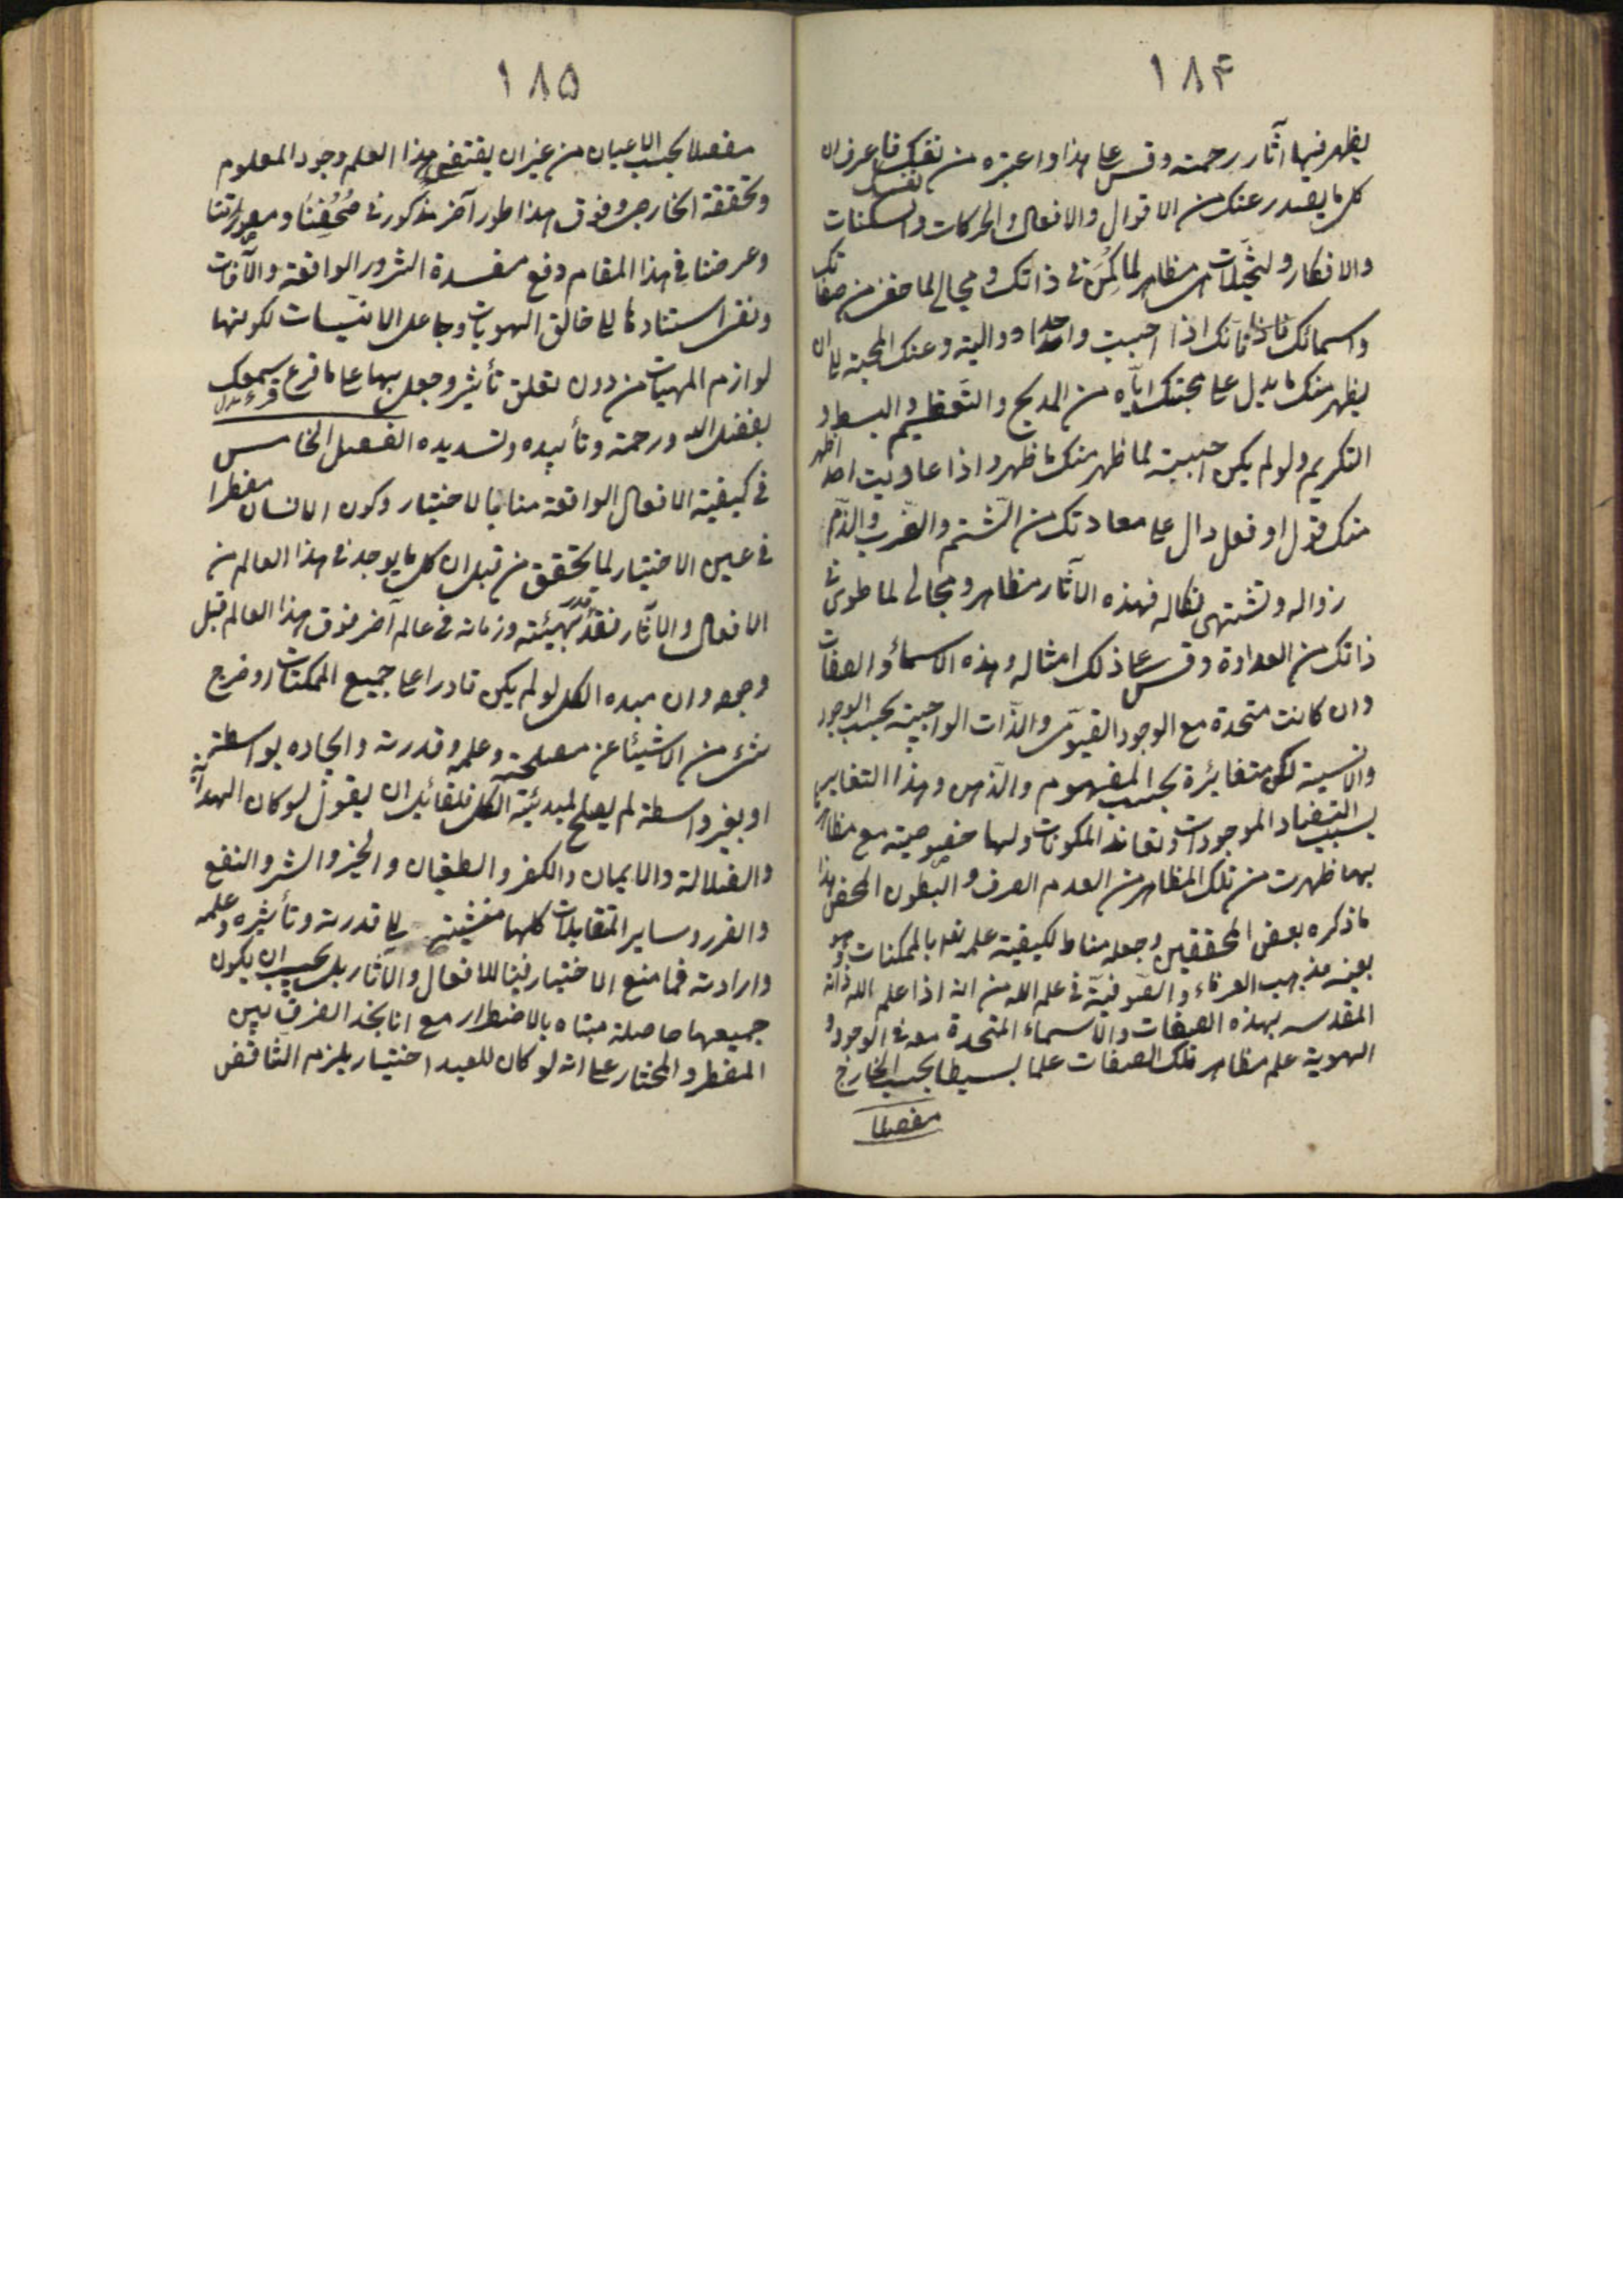 ١٨۴
يظهر فيها آثار رحمته وقس على هذا واعتبره من نفسك فاعرف ان
كل ما يصدر عنك من الاقوال والافعال والحركات والسكنات
والافكار والتخيّلات هى مظاهر لما كَمُنَ فى ذاتك ومجالى لما خفى من صفاتك
واسمائك فانك اذا احببت واحدا وواليته وعنك المحبة الى ان
يظهر منك ما يدل على محبتك ايّاه من المديح والتّعظيم والبسط و
التكريم ولو لم يكن احببته لما ظهر منك ما ظهر واذا عاديت احدا ظهر
منك قول او فعل دال على معاداتك من الشّتم والضّرب والذّم
زواله وتشتهى نكاله فهذه الآثار مظاهر ومجالى لما طوى فى
ذاتك من العداوة وقس على ذلك امثاله وهذه الاسماء والصفات
وان كانت متحدة مع الوجود القيومى والذّات الواجبيّة بحسب الوجود
والانسية لكن متغايرة بحسب المفهوم والذّهن وهذا التغاير
بسبب التضاد الموجودات وتعاند المكونات ولها خصوصية مع مظاهرها
بهما ظهرت من تلك المظاهر من العدم الصرف والبطون المحض هذا
ما ذكره بعض المحققين وجعله مناطا لكيفية علمه تعالى بالممكنات وهو
بعينه مذهب العرفاء والصّوفيّة فى علم الله من انه اذا علم الله ذاته
المقدسه بهذه الصفات والاسماء المتحدة معه فى الوجود و
الهوية علم مظاهر تلك الصفات علما بسيطا بحسب الخارج
مفصلا
١٨۵
مفصلا بحسب الاعيان من غير ان يقتضى هذا العلم وجود المعلوم
وتحققة الخارجى وفوق هذا طور آخر مذكور فى صُحُفِنا ومسطوراتنا
وغرضنا فى هذا المقام دفع مفسدة الشرور الواقعة والآفات
ونفى استنادها الى خالق الهويات وجاعل الانيّات لكونها
لوازم المهيات من دون تعلق تأثير وجعل بها على ما قرع سمعك
بفضل الله ورحمته وتأييده وتسديده الفصل الخامس
فى كيفية الافعال الواقعة منا بالاختيار وكون الانسان مضطرا
فى عين الاختيار لما تحقق من قبل ان كل ما يوجد فى هذا العالم من
الافعال والآثار فقد قدر بهيئته وزمانه فى عالم آخر فوق هذا العالم قبل
وجوده وان مبدء الكل لو لم يكن قادرا على جميع الممكنات او خرج
شىء من الاشياء عن مصلحته وعلمه وقدرته وايجاده بواسطة
او بغير واسطة لم يصلح لمبدئية الكل فلقائل ان يقول لو كان الهداية
والضلالة والايمان والكفر والطغيان والخير والشر والنفع
والضرر وساير المتقابلات كلها منتهية الى قدرته وتأثيره وعلمه
وارادته فما منع الاختيار فينا للافعال والآثار بل يجب ان يكون
جميعها حاصلة مبناه بالاضطرار مع انا نجد الفرق بين
المضطر والمختار على انه لو كان للعبد اختيار يلزم التناقض